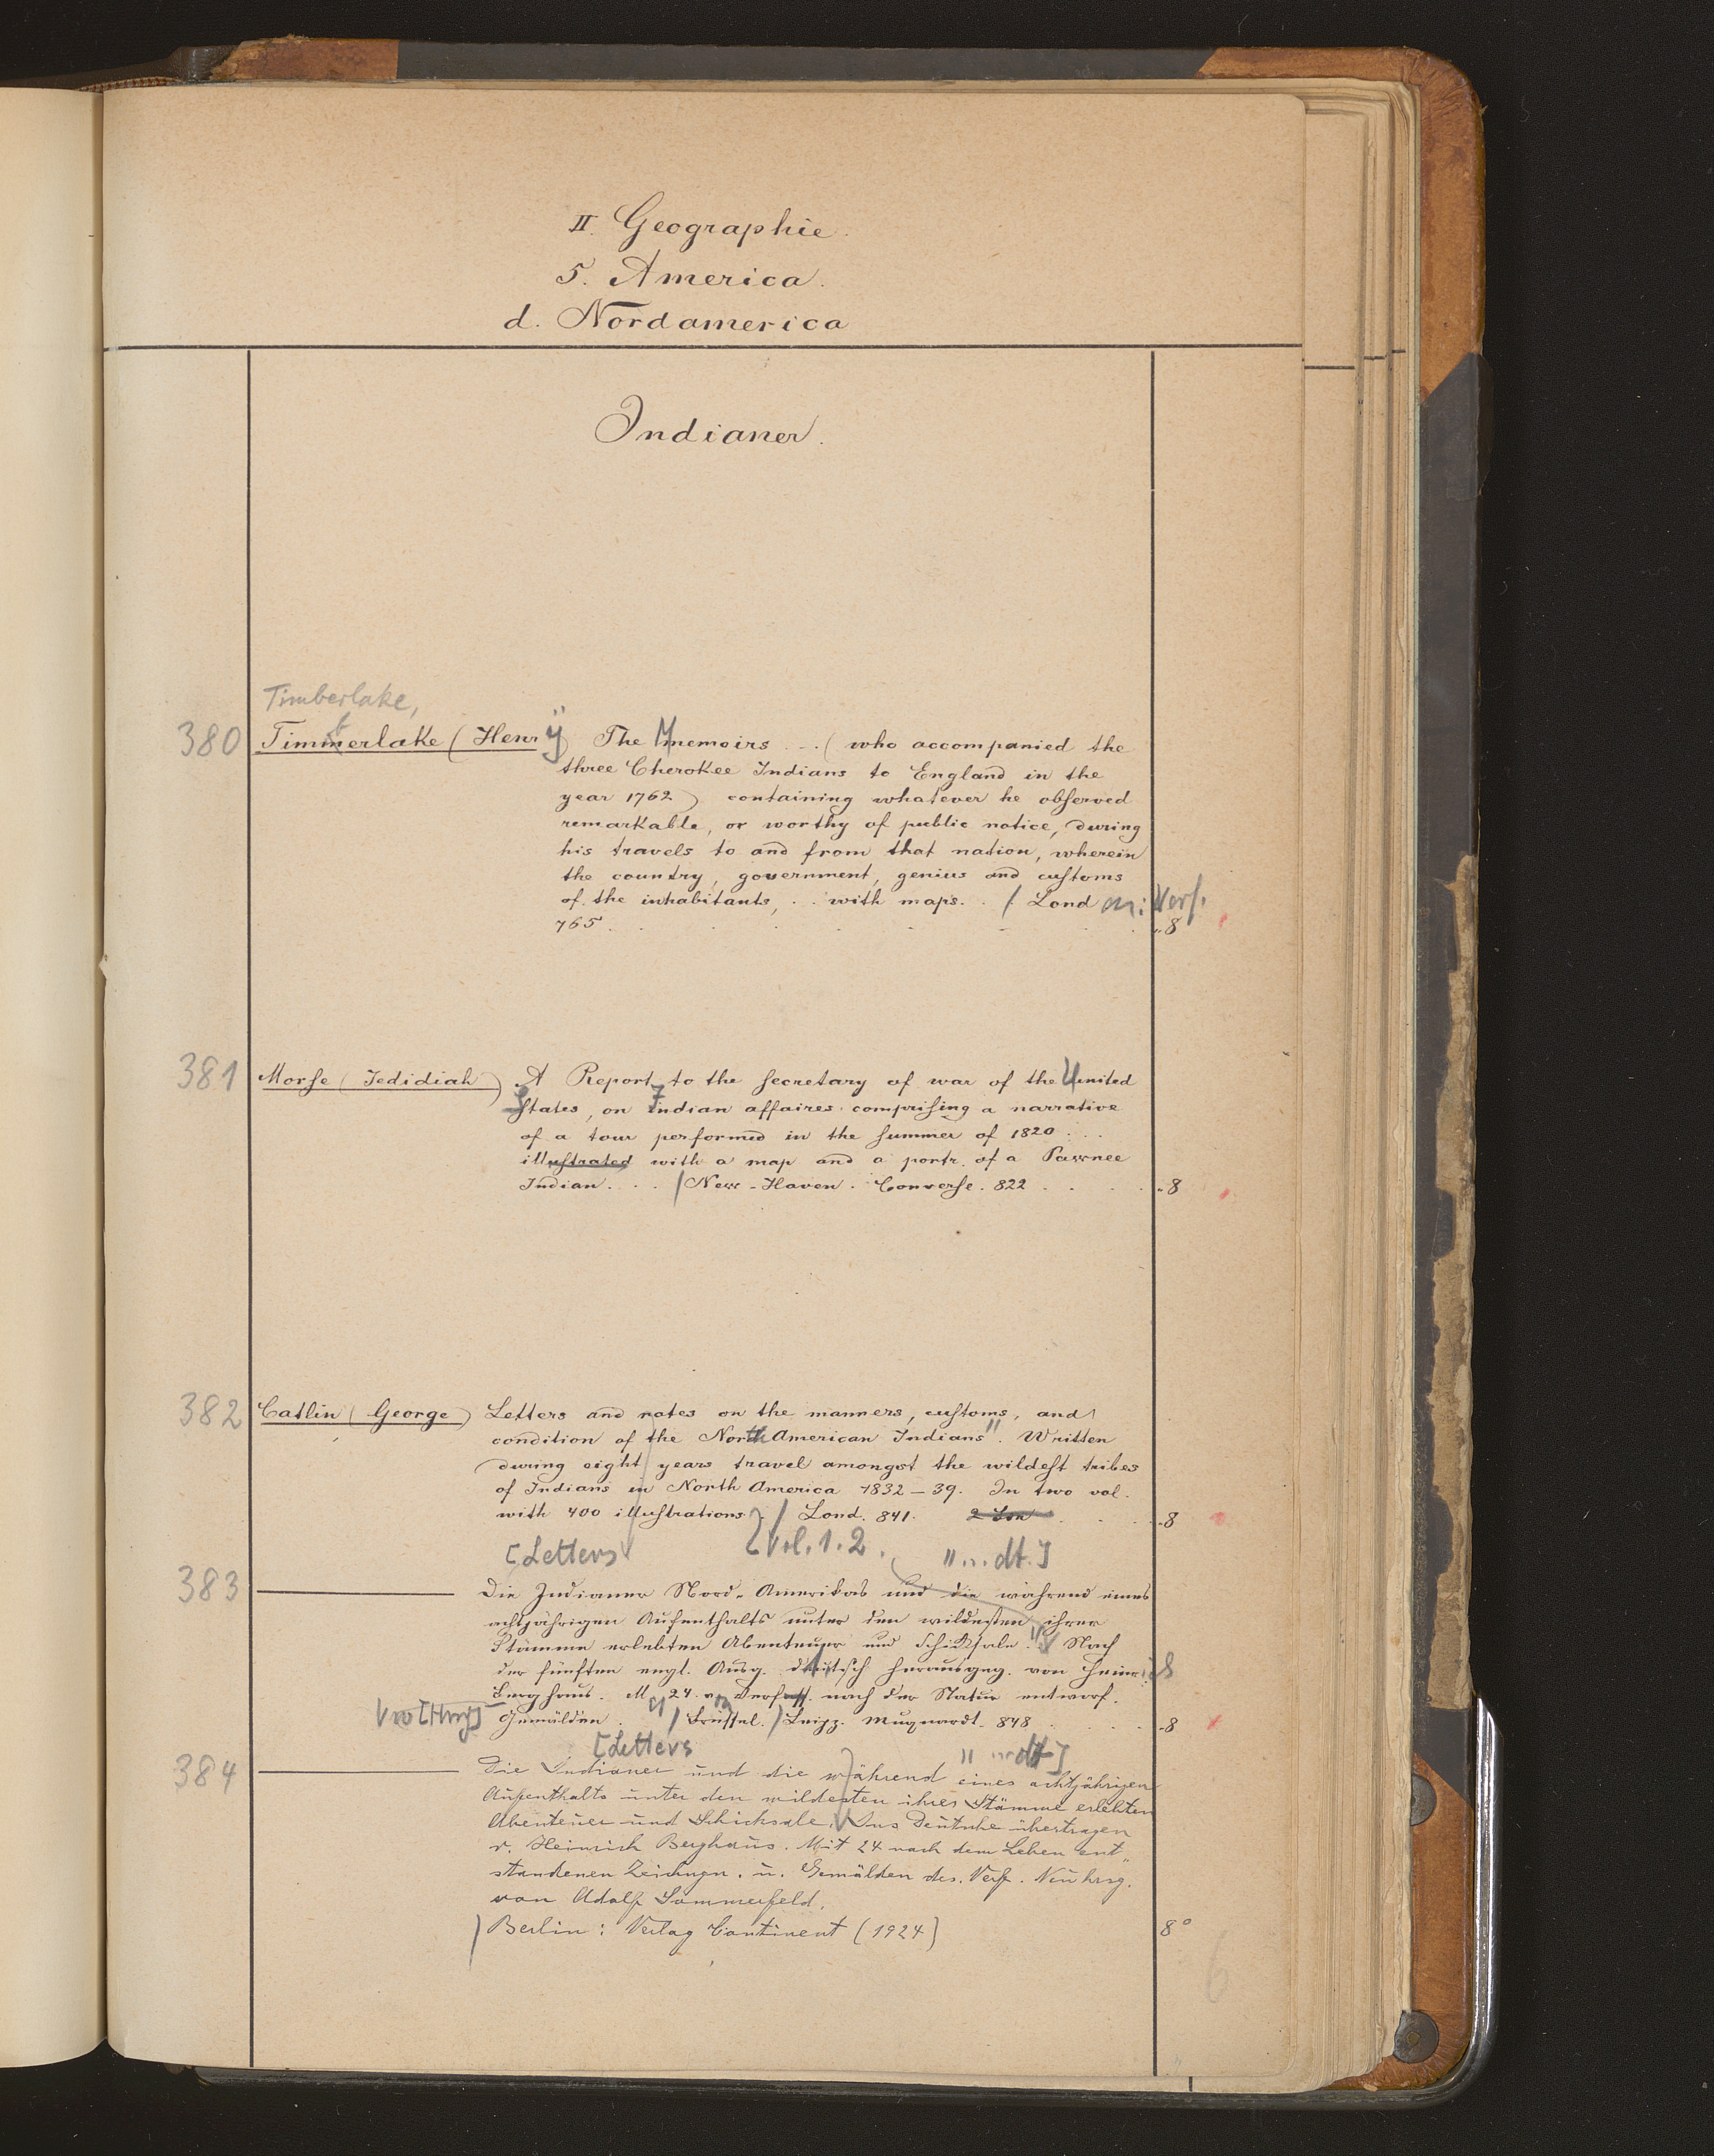 II. Geographie.
5. America.
d. Nordamerica
Indianer.
Timberlake,
380 Timmerlake (Henrÿ) The Memoirs . . ( who accompanied the
three Cherokee Indians to England in the
year 1762 ) containing whatever he obſerved
remarkable, or worthy of public notice, during
his travels to and from that nation, wherein
the country, government, genius and cuſtoms
of the inhabitants, . . with maps. . / Lond Verf.
765 . . . . . . . „8
381 Morſe (Jedidiah) A Report to the ſecretary of war of the United
States, on Indian affaires compriſing a narrative
of a tour performed in the ſummer of 1820 . . .
illuſtrated with a map and a portr. of a Pawnee
Indian . . . / New-Haven. Converſe. 822 . . . . „8
382 Catlin (George) Letters and notes on the manners, cuſtoms, and
condition of the North American Indians". Written
during eight years travel amongst the wildeſt tribes
of Indians in North America 1832–39. In two vol.
with 400 illuſtrations. / Lond. 841. . . . „8
[Letters [Vol. 1.2. " .. dt.]
383 ——— Die Indianer Nord-Amerikas und die während eines
achtjährigen Aufenthalts unter den wildesten ihrer
Stämme erlebten Abenteuer und Schickſale." Nach
der fünften engl. Ausg. deutsch herausgeg. von Heinrich
Berghaus. M 24 vom Verfass. nach der Natur entworf.
Gemälden. / Brüssel. / Leipz. Muquardt. 848 . . . . -8
[Letters " .. dt]
384 ——— Die Indianer und die während eines achtjährigen
Aufenthalts unter den wildesten ihres Stämme erlebten
Abenteuer und Schicksale. Ins Deutsche übertragen
v. Heinrich Berghaus. Mit 24 nach dem Leben ent„
standenen Zeichngn. u. Gemälden des. Verf. Neu hrsg.
von Adolf Sommerfeld.
/ Berlin: Verlag Continent (1924) 8°
6